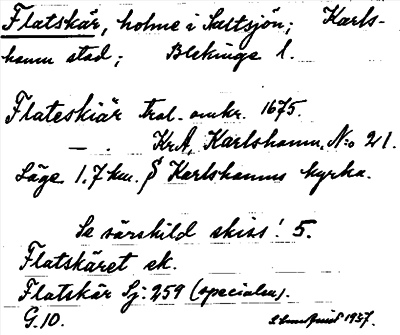 Flatskär, holme i Saltsjön; Karls-
hamn stad; Blekinge l.
Flateskiär Tral. omkr. 1675.
— . KrA, Karlshamn, N:o 21.
Läge 1.7 km. S Karlshamns kyrka.
Se särskild skiss! 5.
Flatskäret ek.
Flatskär Sj: 259 (specialen).
G.10. 1937.